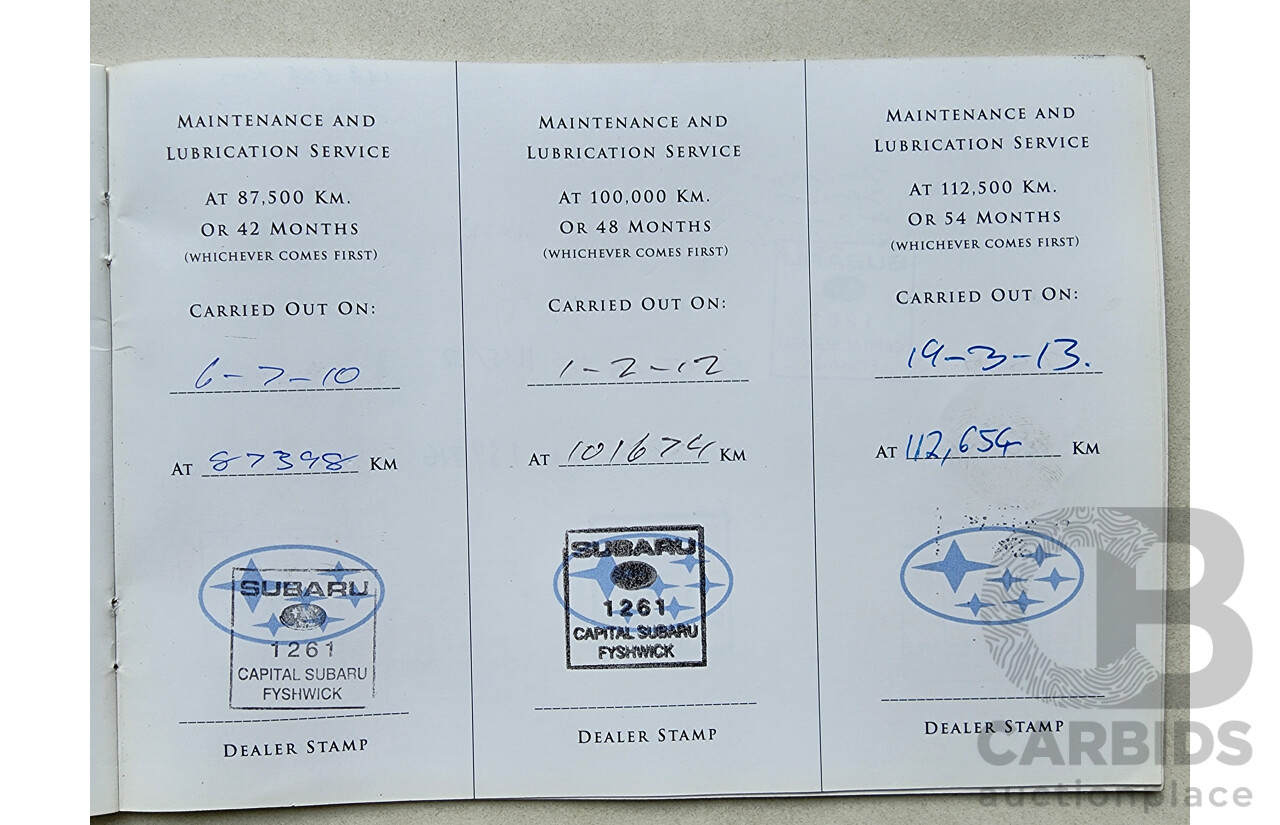 MAINTENANCE AND
LUBRICATION SERVICE
AT 87,500 KM.
OR 42 MONTHS
(WHICHEVER COMES FIRST)
CARRIED OUT ON:
6-7-10
AT 87398 KM
SUBARU
1261
CAPITAL SUBARU
FYSHWICK
DEALER STAMP
MAINTENANCE AND
LUBRICATION SERVICE
AT 100,000 KM.
OR 48 MONTHS
(WHICHEVER COMES FIRST)
CARRIED OUT ON:
1-2-12
AT 101674 KM
SUBARU
1261
CAPITAL SUBARU
FYSHWICK
DEALER STAMP
MAINTENANCE AND
LUBRICATION SERVICE
AT 112,500 KM.
OR 54 MONTHS
(WHICHEVER COMES FIRST)
CARRIED OUT ON:
19-3-13.
AT 112,654 KM
DEALER STAMP
CARBIDS
auctionplace